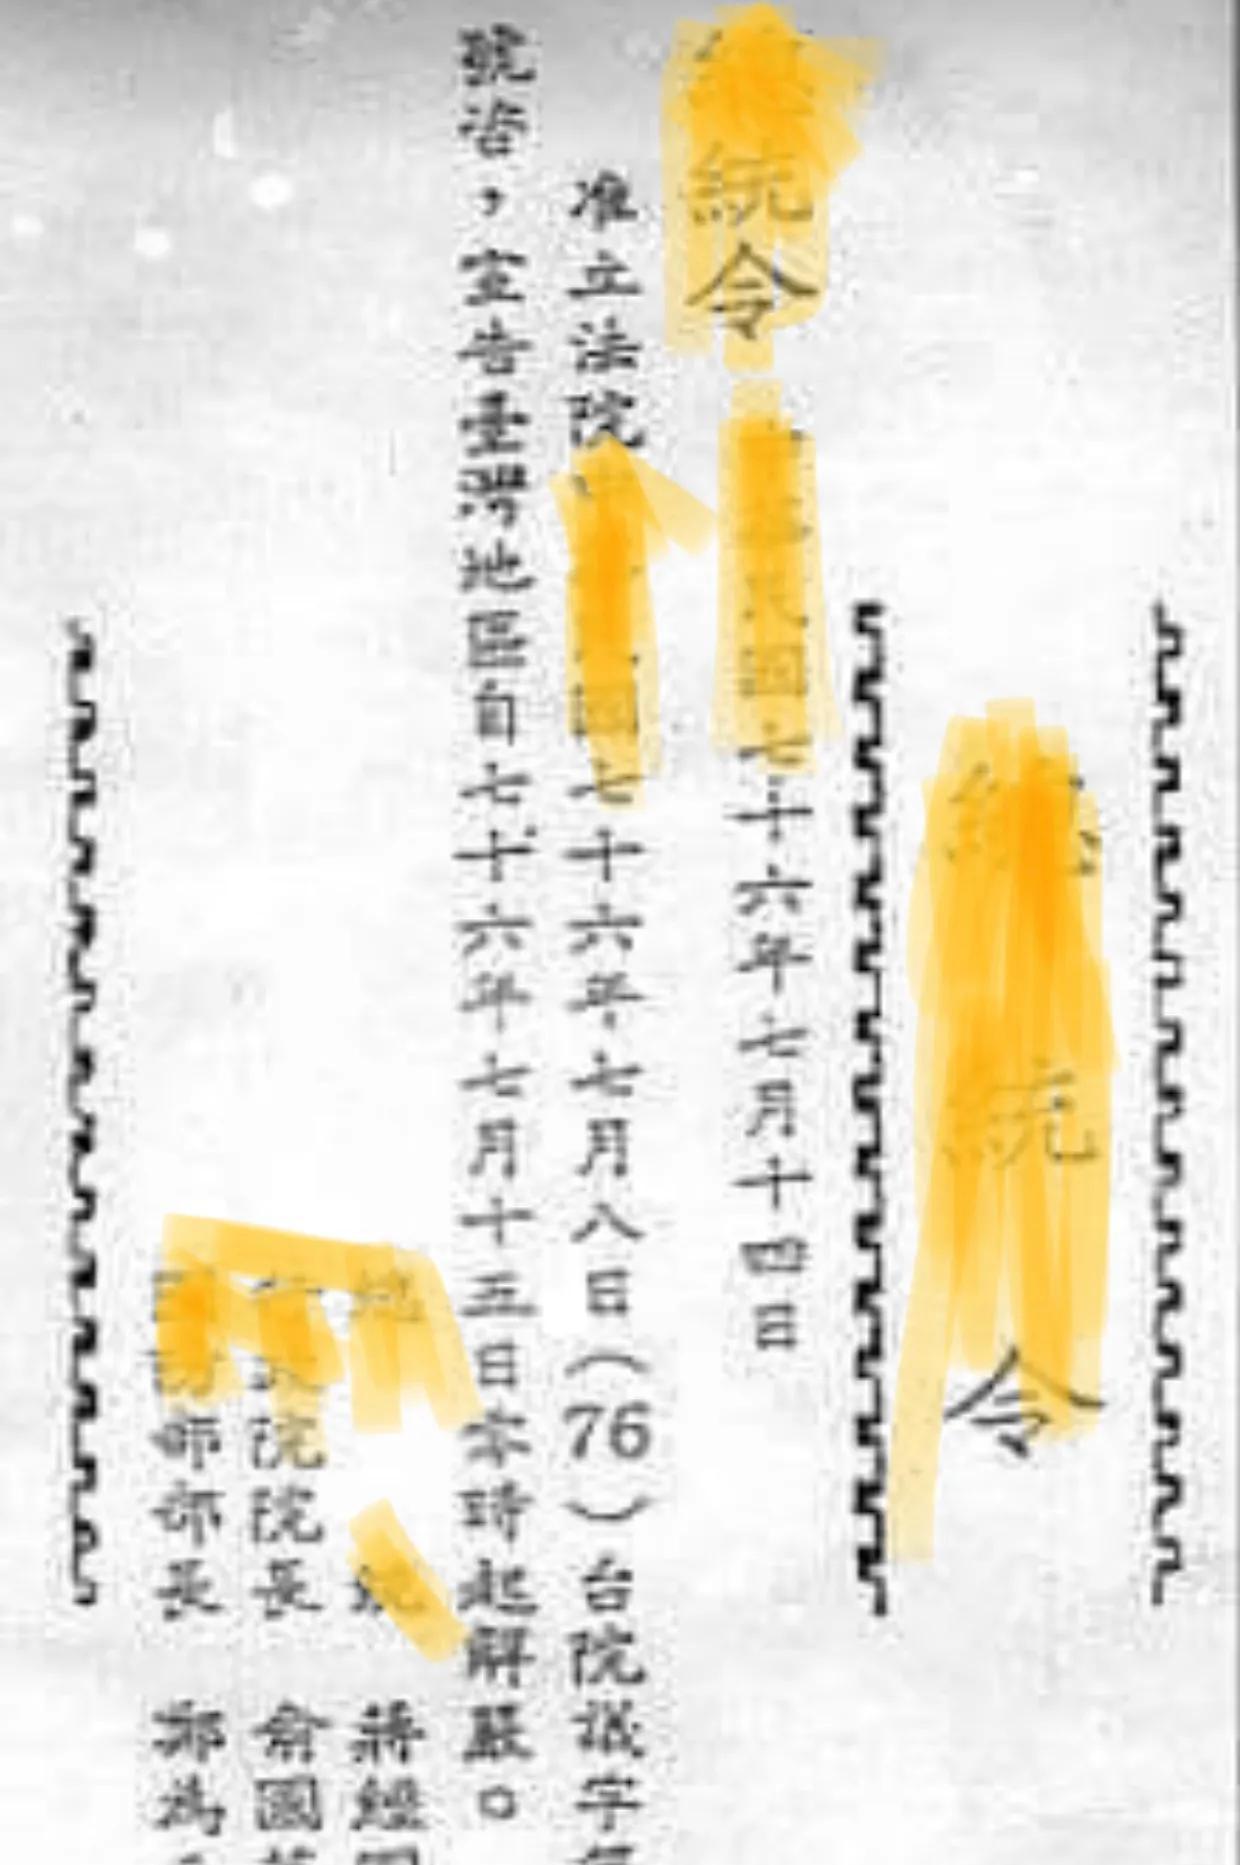 統令
統令
民國七十六年七月十四日
准立法院 國七十六年七月八日(76)台院議字
號咨,宣告臺灣地區自七十六年七月十五日零時起解嚴。
總 統 蔣經
院院長 俞國
部部長 鄭為